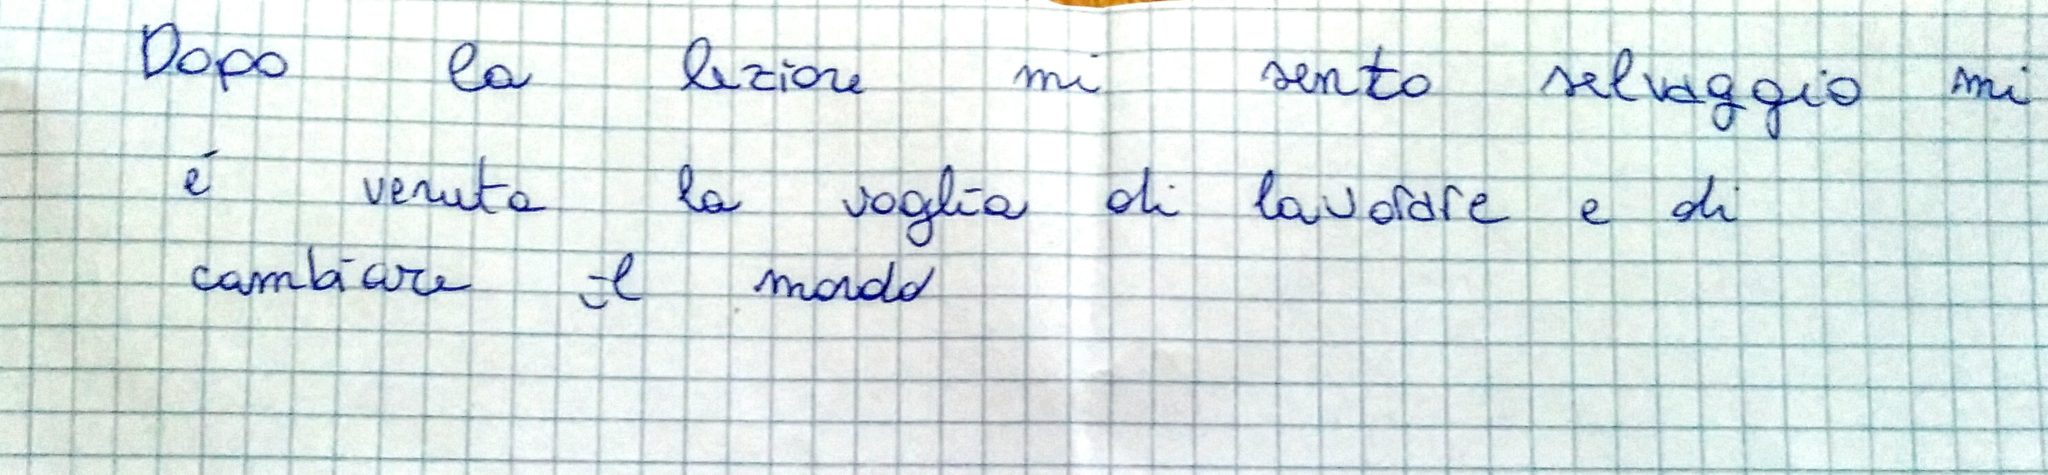 Dopo la lezione mi sento selvaggio mi
é venuta la voglia di lavorare e di
cambiare il mondo